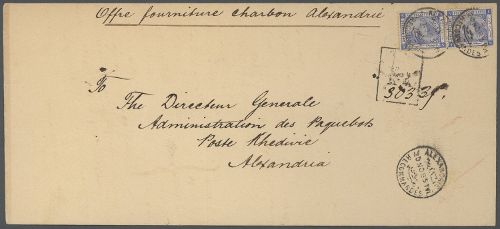 Offre fourniture charbon Alexandrie
To
The Directeur Generale
Administration des Paquebots
Poste Khedivié
Alexandria